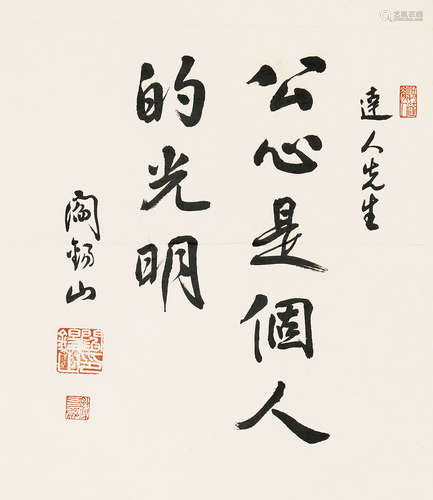 達人先生
公心是個人
的光明
閻錫山